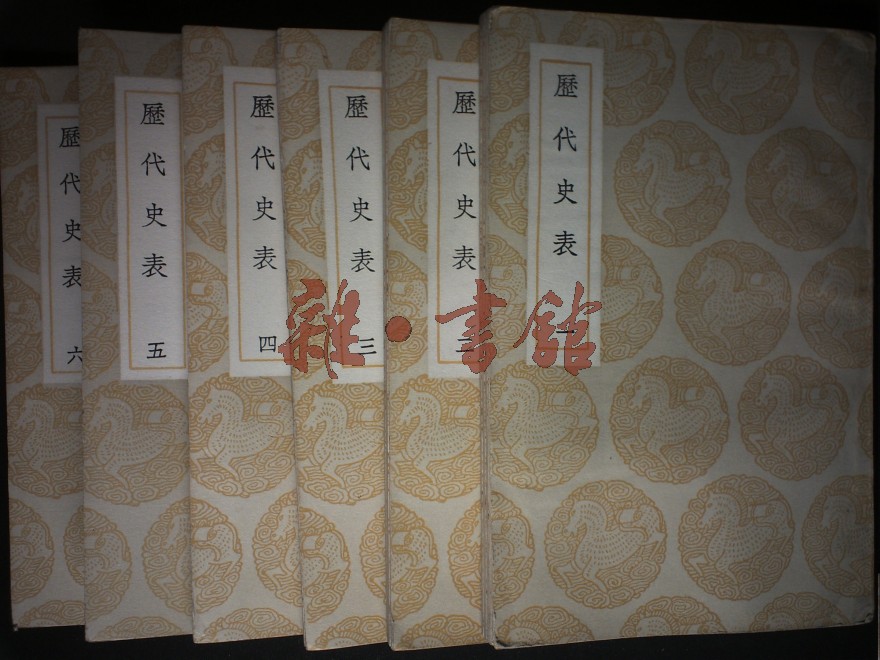 歷代史表 一
歷代史表 二
歷代史表 三
歷代史表 四
歷代史表 五
歷代史表 六
雜·書館